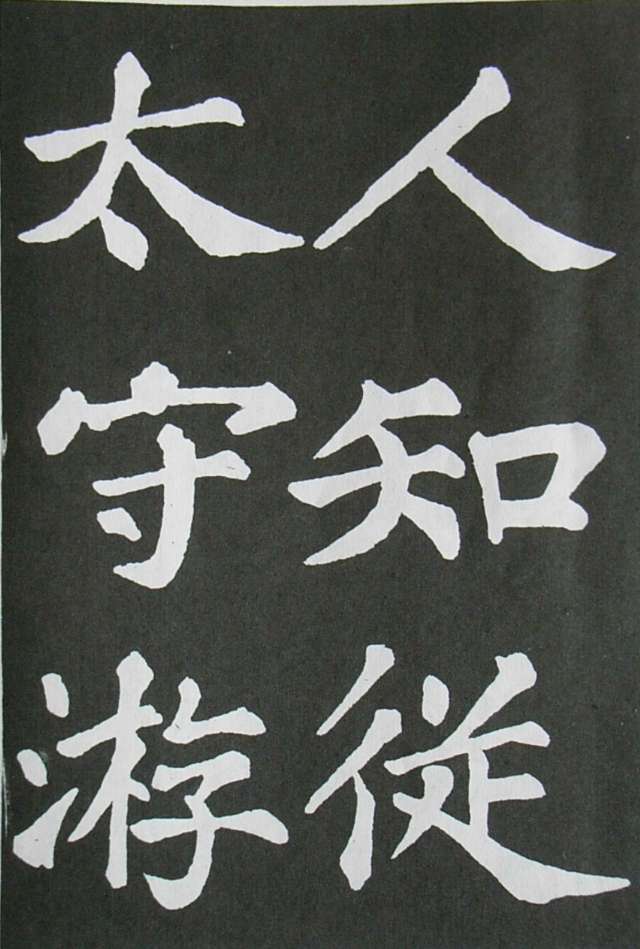 人知從
太守游